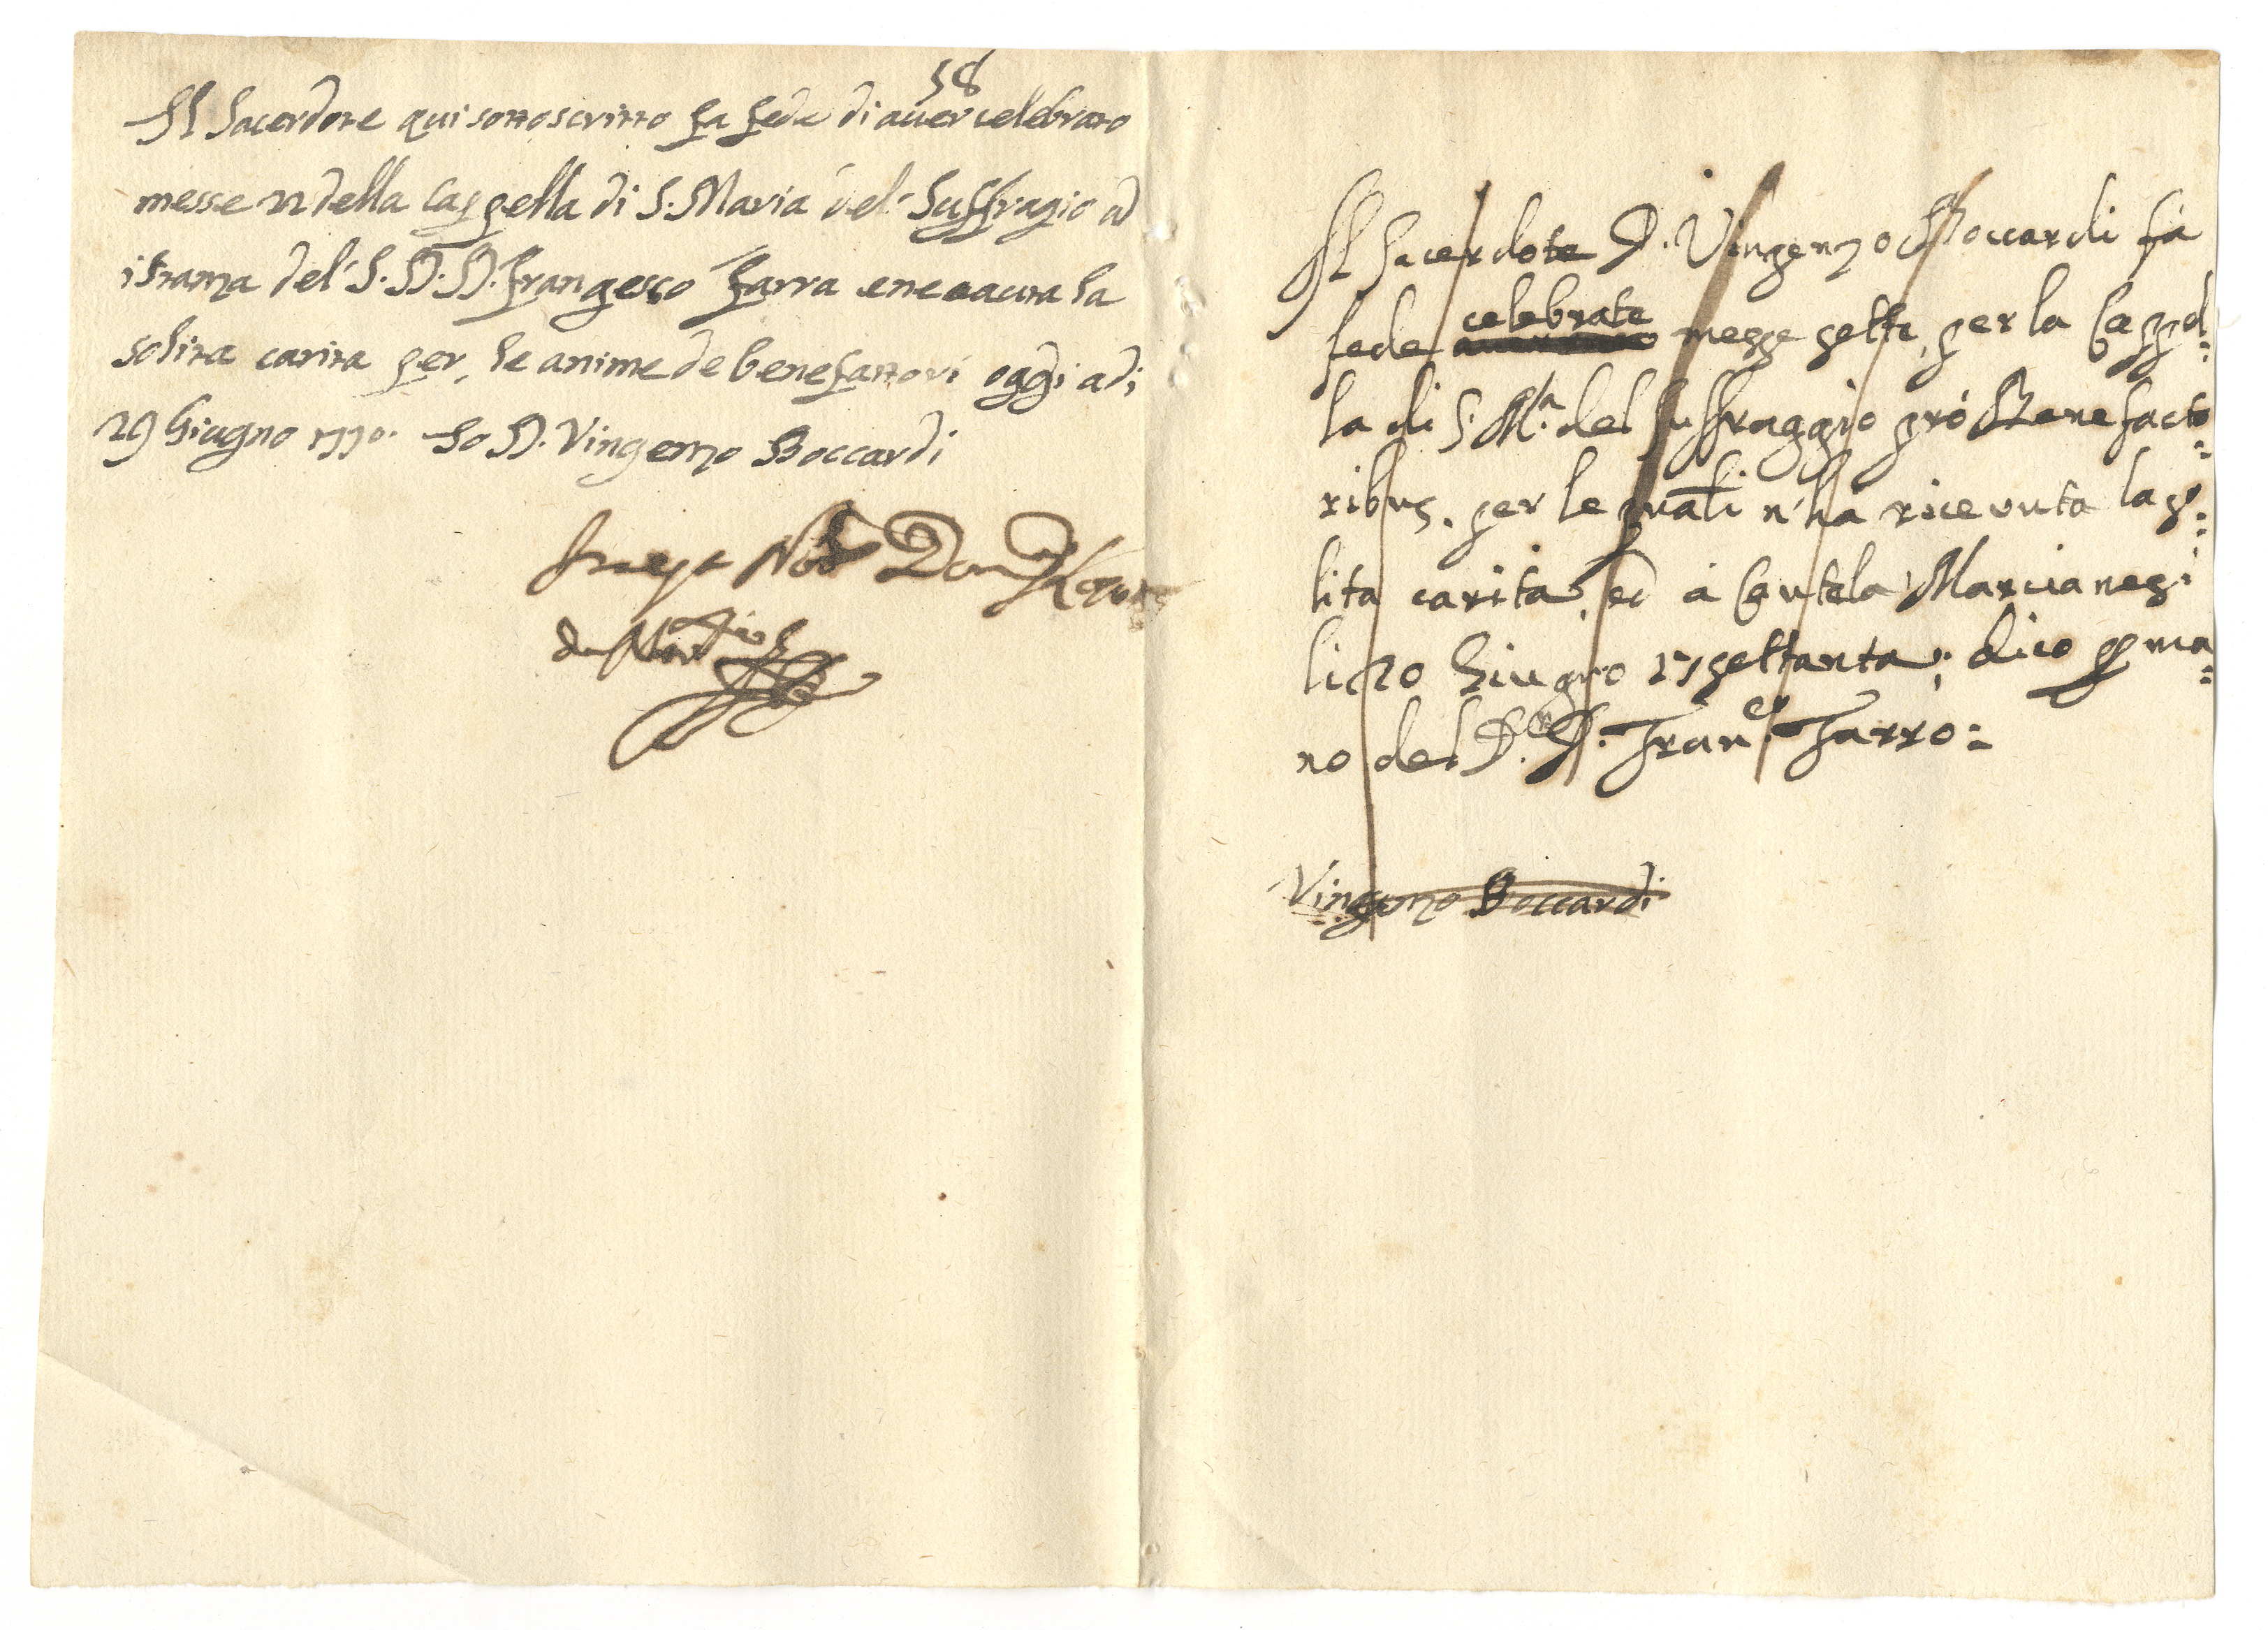 58
Il Sacerdote qui sottoscritto fa fede di auer celebrato
messe 22 della Cappella di S. Maria del Suffragio ad
istanza del S. D. D. Frangesco Farra ene aauta la
solita carita per le anime de benefattori oggi adi
29 Giugno 1770. Io D. Vingenzo Boccardi
Il Sacerdote D. Vingenzo Boccardi fà
fede celebrate messe sette, per la Cappel=
la di S. M.a del Suffraggio prò Benefacto=
ribus, per le quali n'hà riceuuta la so=
lita carita, ed à Cautela Marcianesi
li 20 Giugno 17settanta; dico p ma=
no del D.r D. Fran.co Farro=
Vingenzo Boccardi